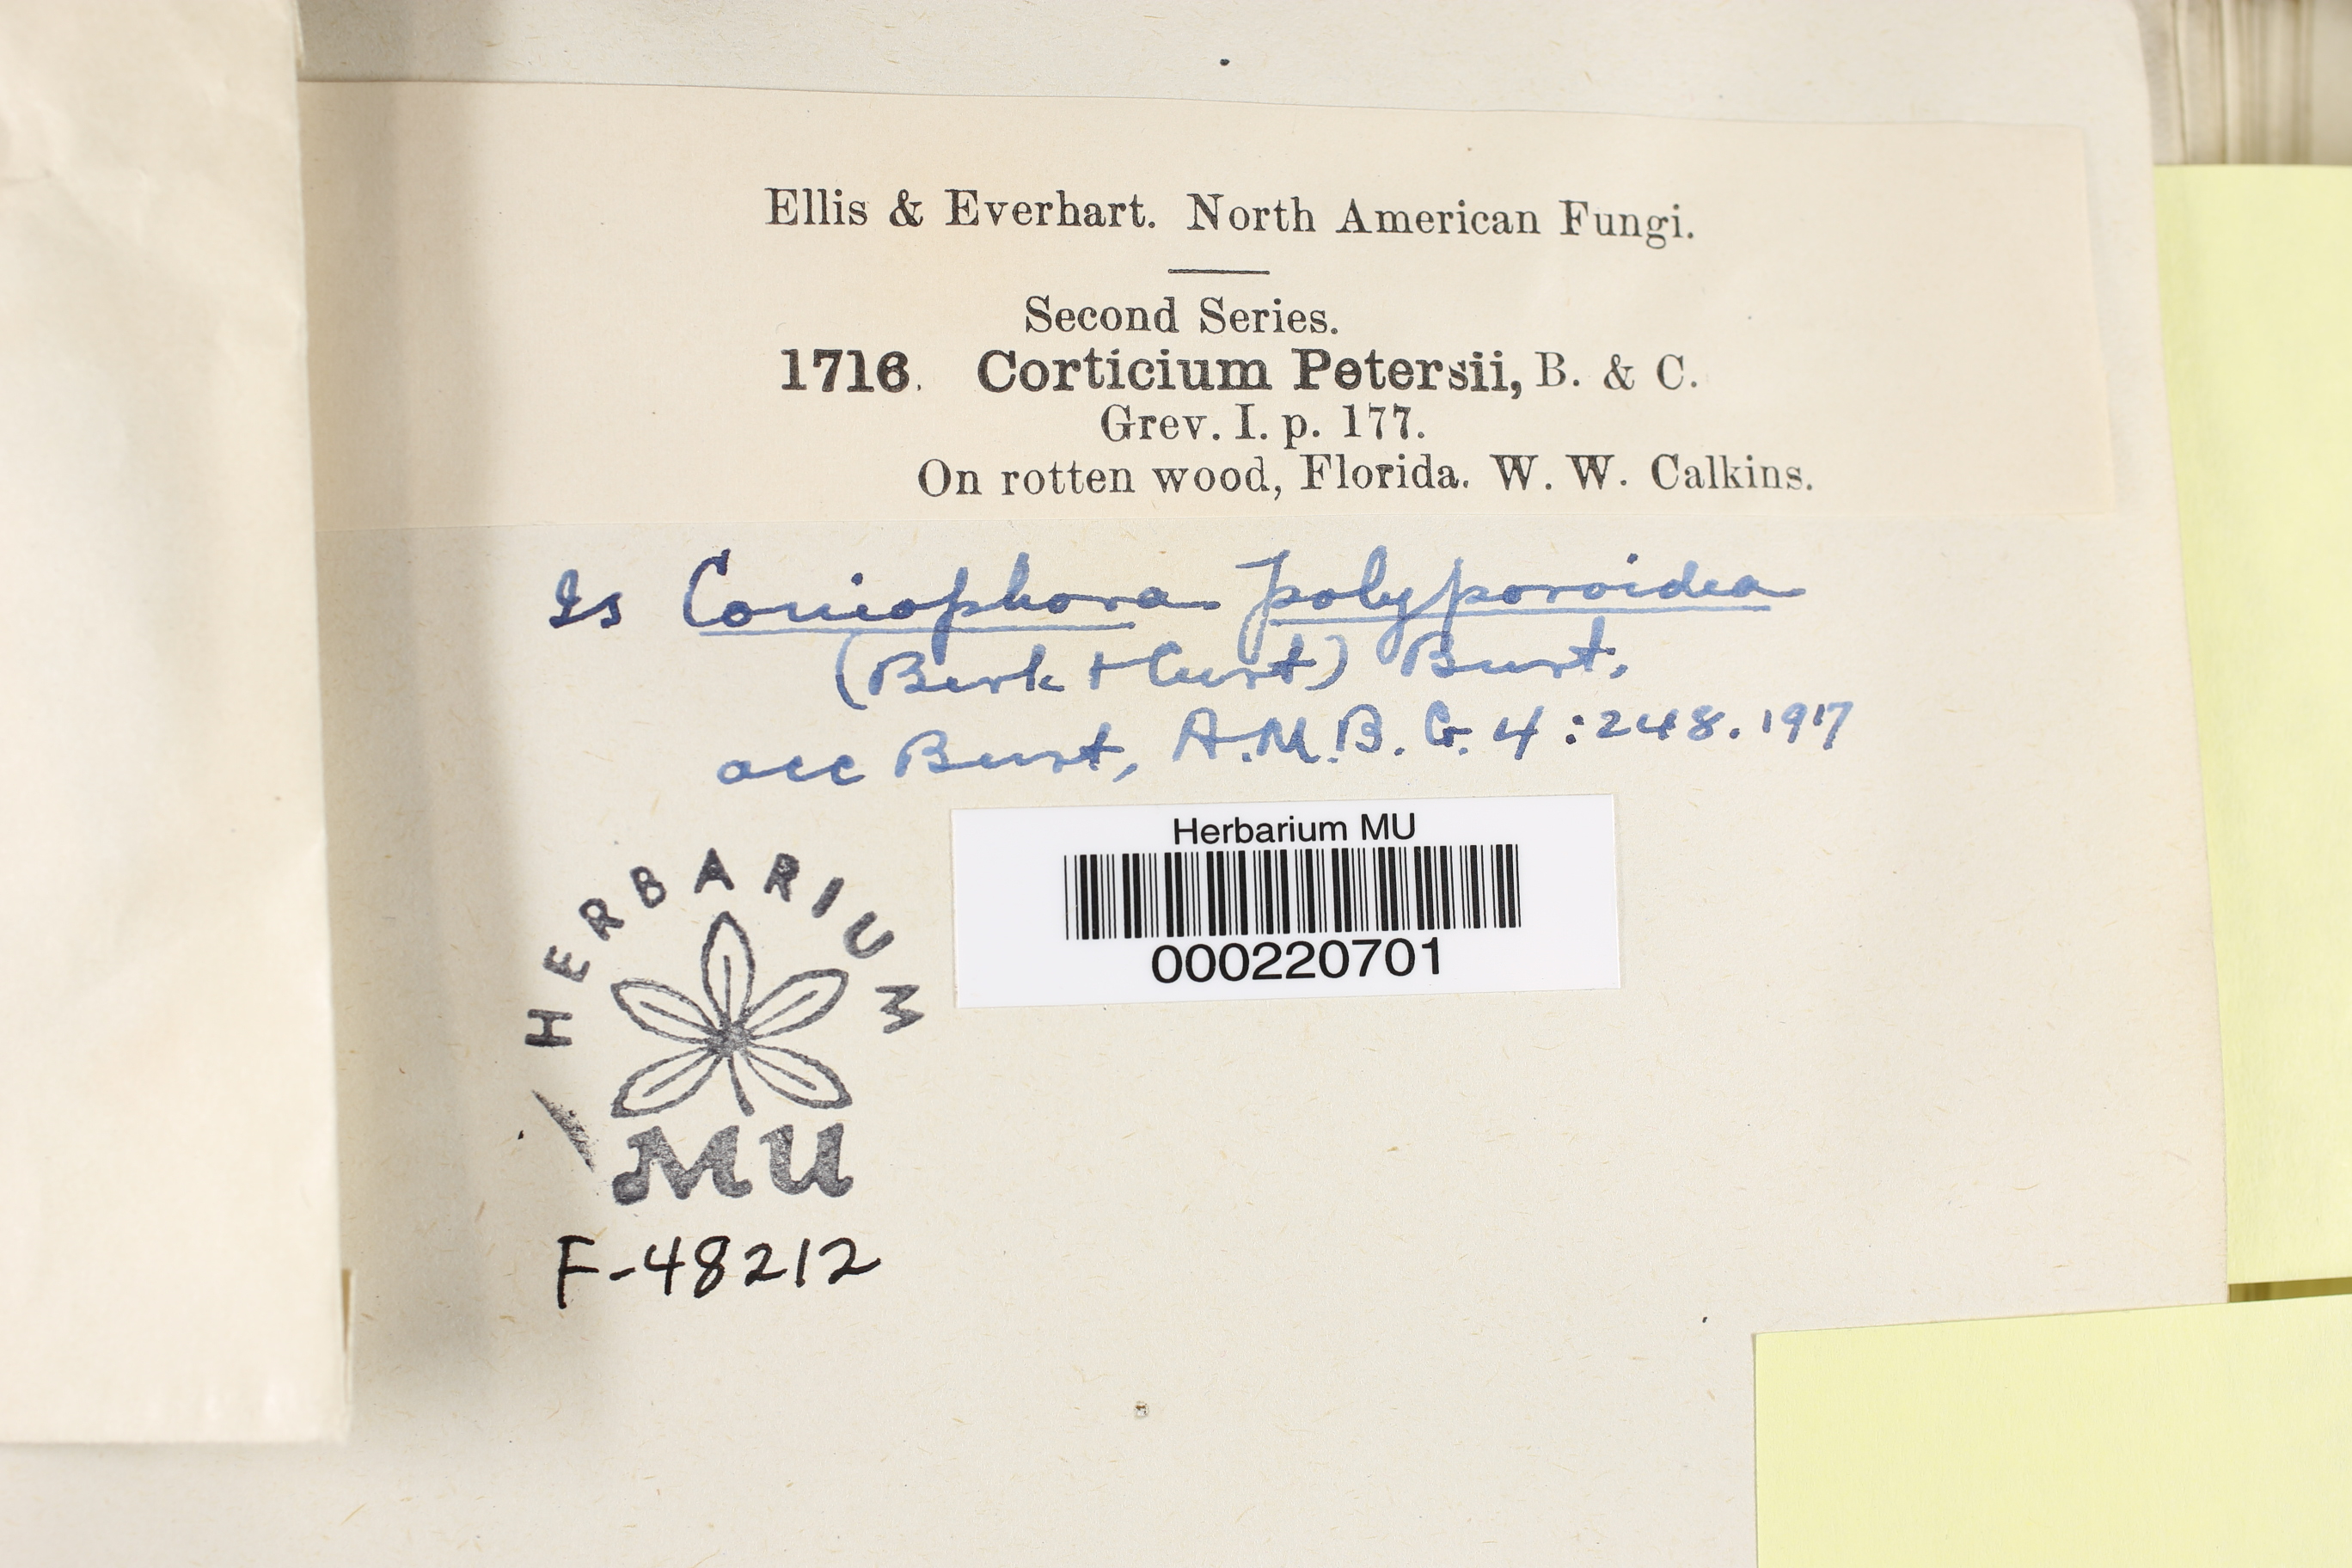 Ellis & Everhart. North American Fungi.
Second Series.
1716. Corticium Petersii, B. & C.
Grev. I. p. 177.
On rotten wood, Florida. W. W. Calkins.
Is Coniophora polyporoidea
(Berk + Curt) Burt,
acc Burt, A.M.B.G. 4:248. 1917
Herbarium MU
000220701
HERBARIUM
MU
F-48212